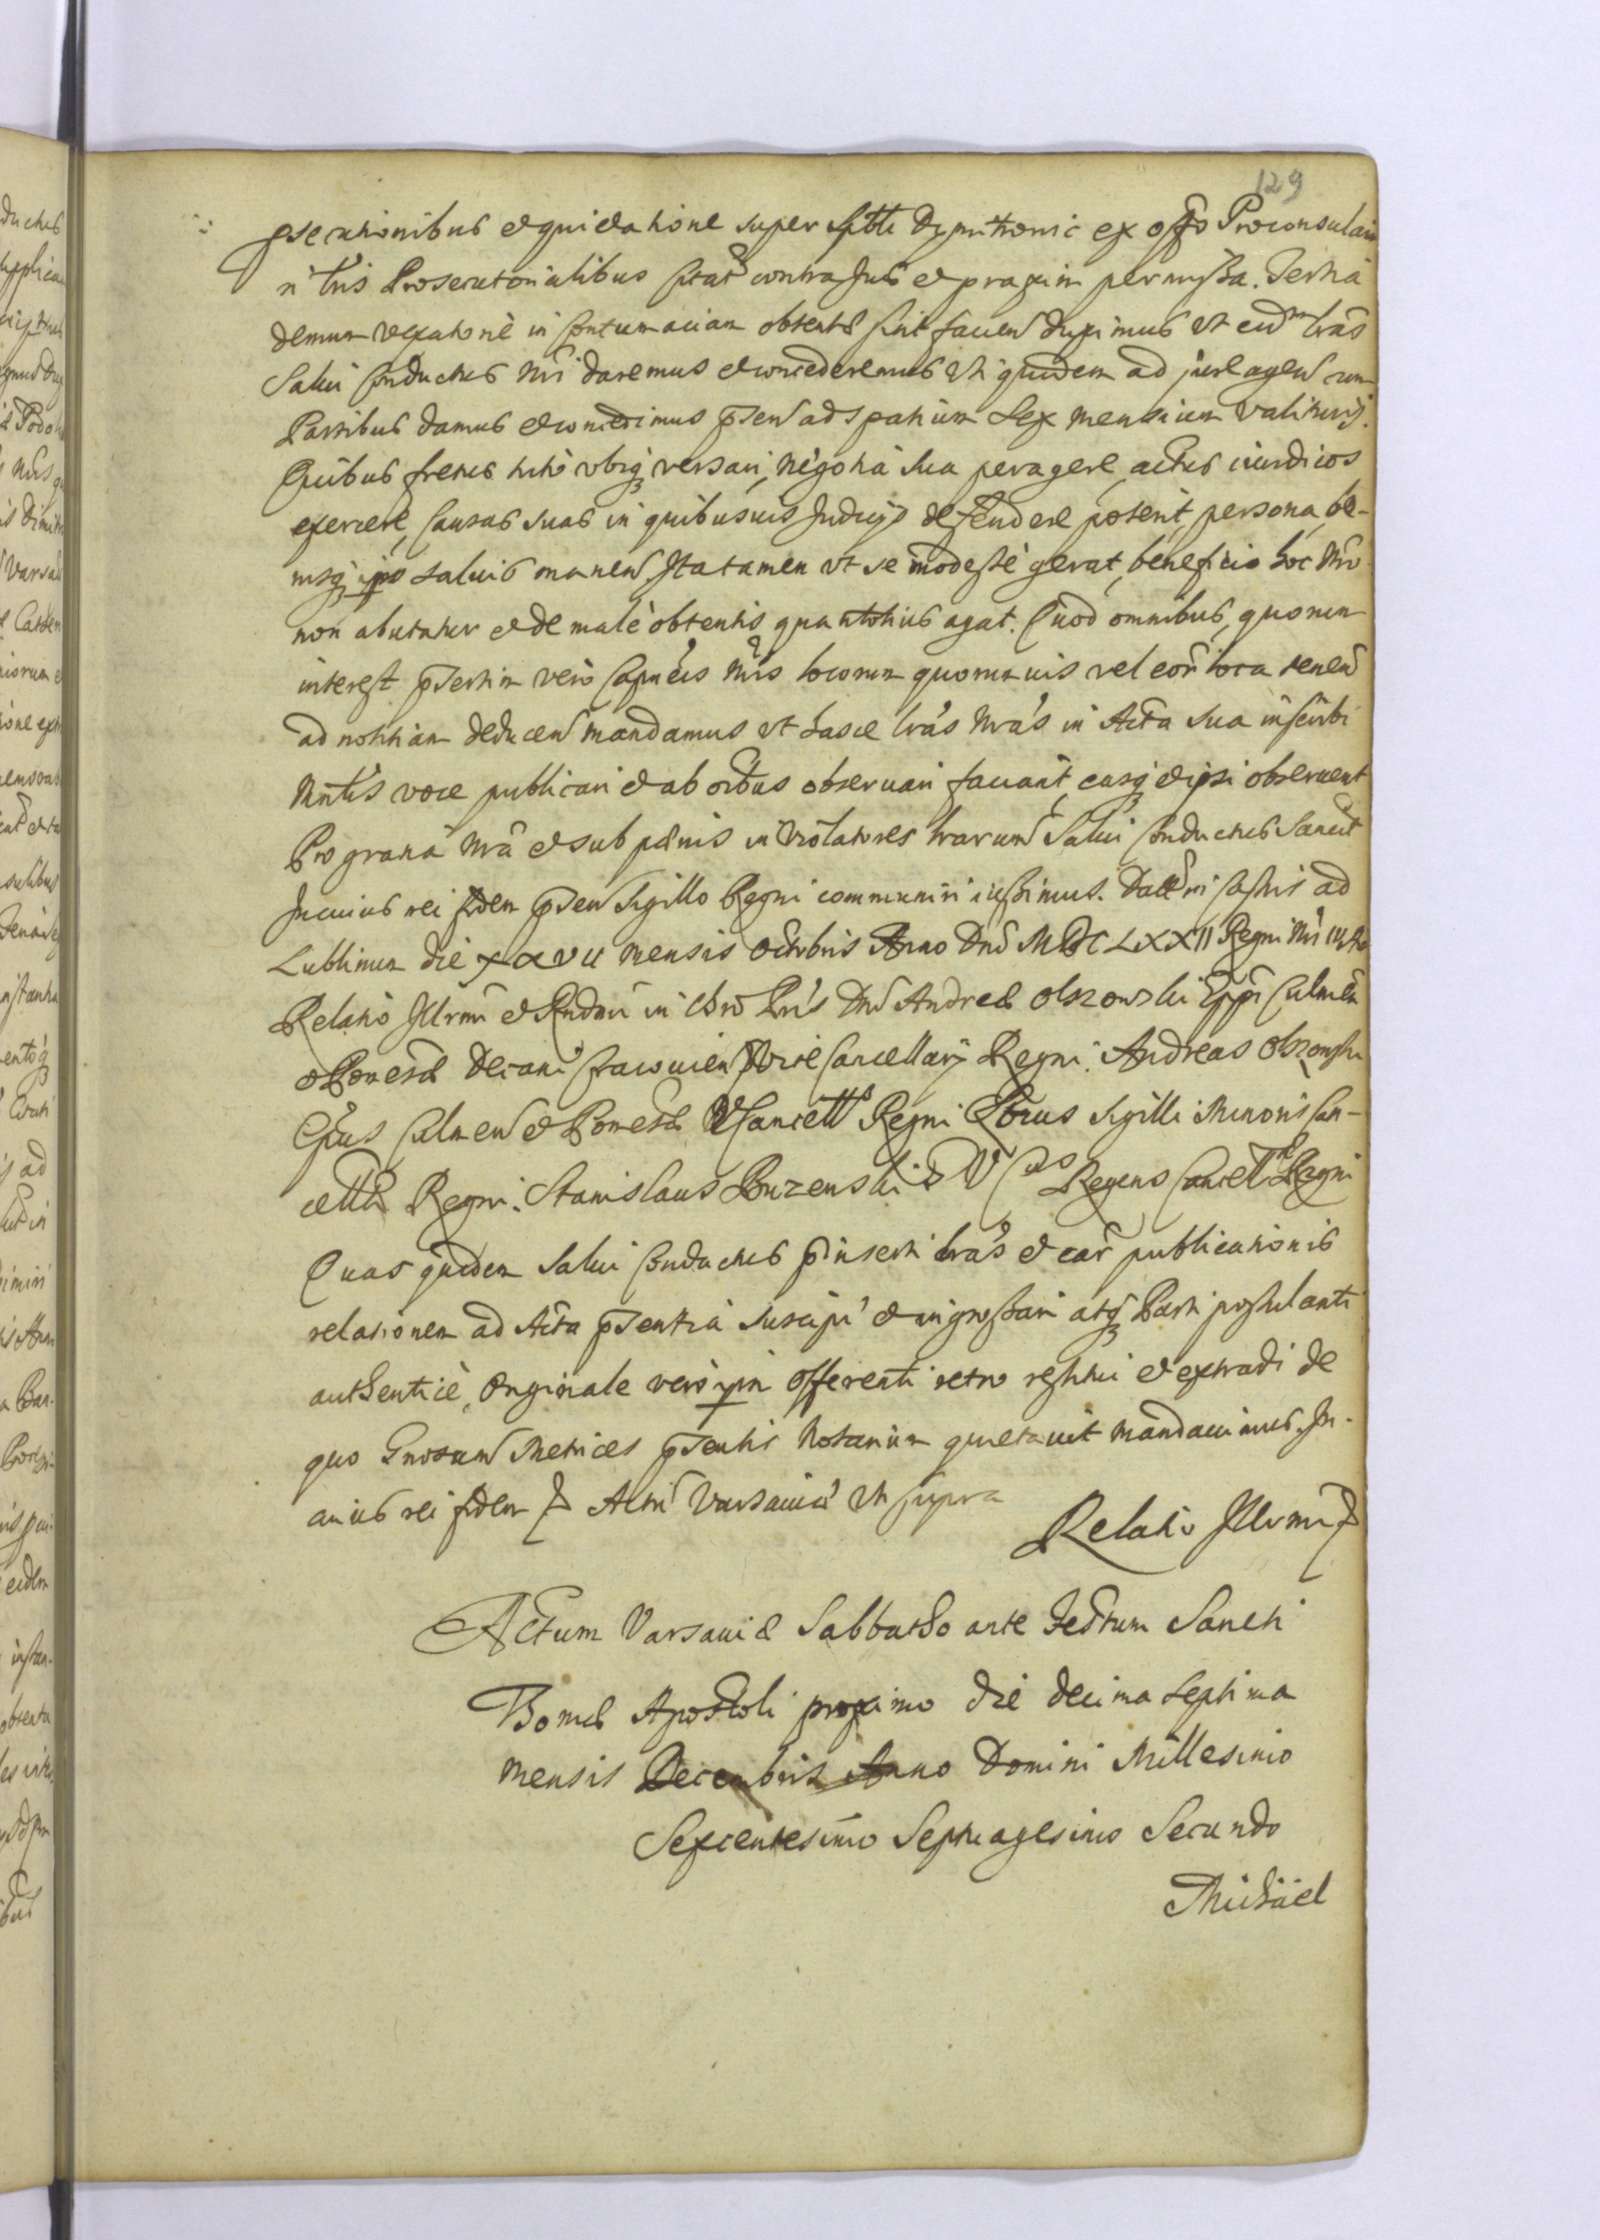 129
psecutionibus et quietatione super Dymitrowic ex offo Proconsulari
n Lris Prosecutorialibus Citat contra Jus et praxim permissa. Tertia
demum vexatione in Contumaciam obtentis sint faciend duximus vt eidm lras
Salui Conductus Nri daremus et concederemus Vti quidem ad jure agend cum
Partibus damus et concedimus psent ad spatium Sex mensium valituris.
Quibus fretus tuto vbiq versari, negotia sua peragere, actus iuridicos
exercere, Causas suas in quibusuis Judicijs defendere poterit, persona, bo-
nisq ipso saluis manen. Ita tamen vt se modestè gerat, beneficio hoc Nro
non abutatur et de malè obtentis quantotius agat. Quod omnibus, quorum
interest psertim verò Capneis Nris locorum quorumuis vel eor loca tenen
ad notitiam deducen mandamus vt hasce lras Nras in Acta sua inscribi
Mntis voce publicari et ab oibus obseruari faciant, easq et ipsi obseruent
Pro gratia Nra et sub pænis in violatores lrarum Salui Conductus Sancit
In cuius rei fidem psen Sigillo Regni communiri iussimus. Dat in Castris ad
Lublinum die XXVII mensis Octobris Anno Dni MDCLXXII Regni Nri
Relatio Illrmi et Rndmi in Chro Pris Dni Andreæ Olszowski Eppi Culmen
et Pomesæ Decani Cracouien Vice Cancellarij Regni. Andreas Olszowski
Eppus Culmen et Pomesæ VCancell Regni Locus Sigilli Minoris Can-
cellæ Regni. Stanislaus Buzenski D V C Regens Cancell Regni
Quas quidem Salui Conductus pinserti lras et ear publicationis
relationem ad Acta psentia suscipi et ingrossari atq Parti postulanti
authenticè, Originale verò ipm Offerenti retro restitui et extradi de
quo Metrices psentis Notarium quietauit mandauimus. In
cuius rei fidem Actu Varsauiæ Vt supra
Relatio Illrmi
Actum Varsauiæ Sabbatho ante Festum Sancti
Thomæ Apostoli proximo die decima septima
mensis Decembris Anno Domini Millesimo
Sexcentesimo Septuagesimo Secundo
Michael